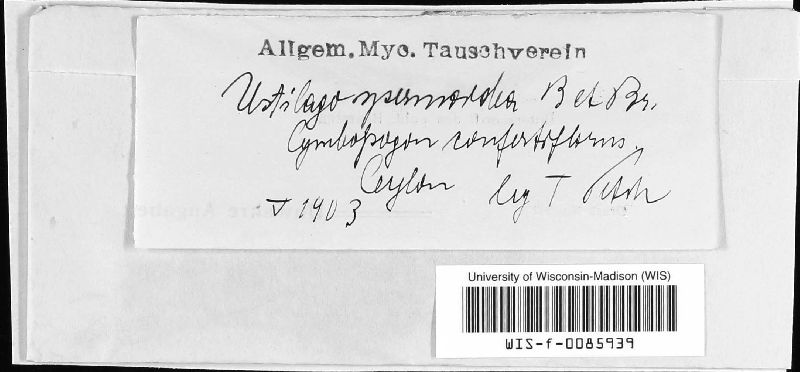 Allgem. Myc. Tauschverein
Ustilago B et Br.
Cymbopogon confertiflorus.
Ceylon leg T Petch
V 1903
University of Wisconsin-Madison (WIS)
WIS-f-0085939